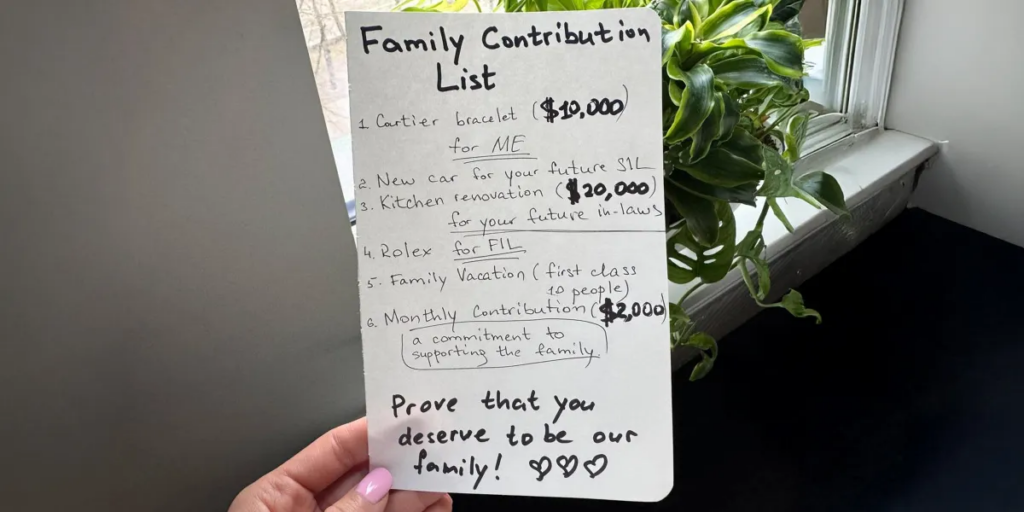 Family Contribution
List
1 Cartier bracelet ($10,000)
for ME
2. New car for your future SIL
3. Kitchen renovation ($20,000)
for your future in-laws
4. Rolex for FIL
5. Family Vacation (first class
10 people)
6. Monthly Contribution ($2,000)
a commitment to
supporting the family
Prove that you
deserve to be our
family! ♡♡♡